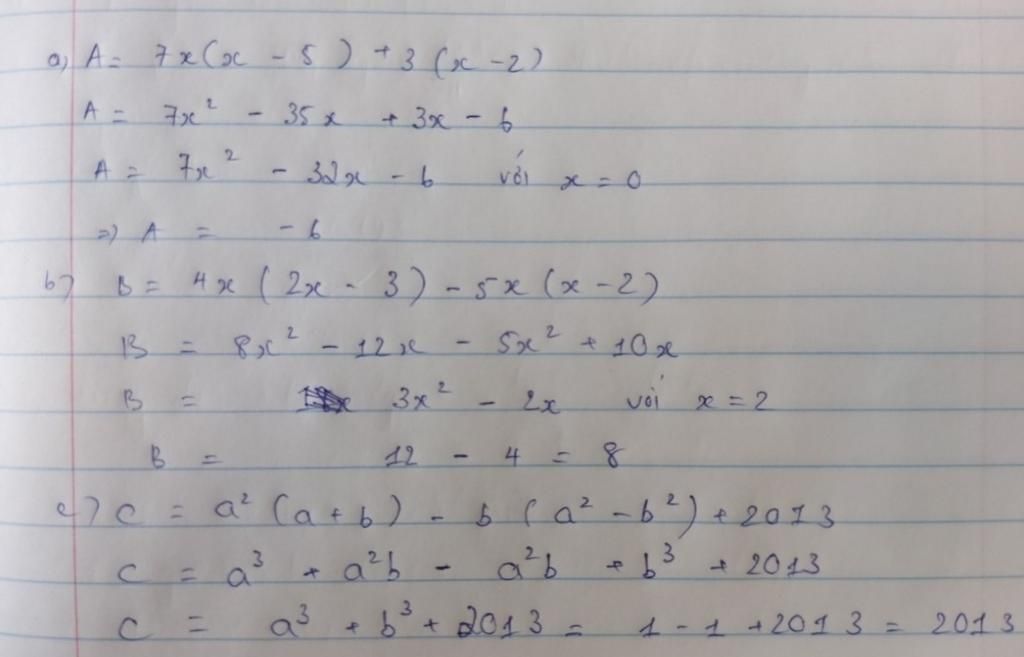 a, A = 7x(x - 5) + 3(x - 2)
A = 7x² - 35x + 3x - 6
A = 7x² - 32x - 6 với x = 0
=> A = - 6
b) B = 4x(2x - 3) - 5x(x - 2)
B = 8x² - 12x - 5x² + 10x
B = 3x² - 2x với x = 2
B = 12 - 4 = 8
c) C = a²(a + b) - b(a² - b²) + 2013
C = a³ + a²b - a²b + b³ + 2013
C = a³ + b³ + 2013 = 1 - 1 + 2013 = 2013